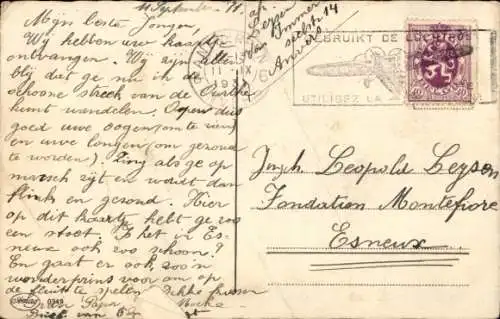 11 September 31.
Mijn beste Jongen,
Wij hebben uw kaartje
ontvangen. Wij zijn allen
blij dat ge nu in de
schoone streek van de Ourthe
kunt wandelen. Open dus
goed uwe oogen (om te zien)
en uwe longen (om gezond
te worden). Zing als ge op
marsch zijt en wordt dan
flink en gezond. Hier
op dit kaartje hebt ge zoo
een stoet. Is het in Es-
neux ook zoo schoon?
En gaat er ook zoo'n
wonderprins voor om op
de fluit te spelen? Dikke kussen
van Papa Moeke
afz.
Leysen
van
14
Anvers
ANTWERPEN
11 IX
19
6
GEBRUIKT DE LUCHTPOST
UTILISEZ LA
Jmph. Leopold Leysen
Fondation Montefiore
Esneux
0349